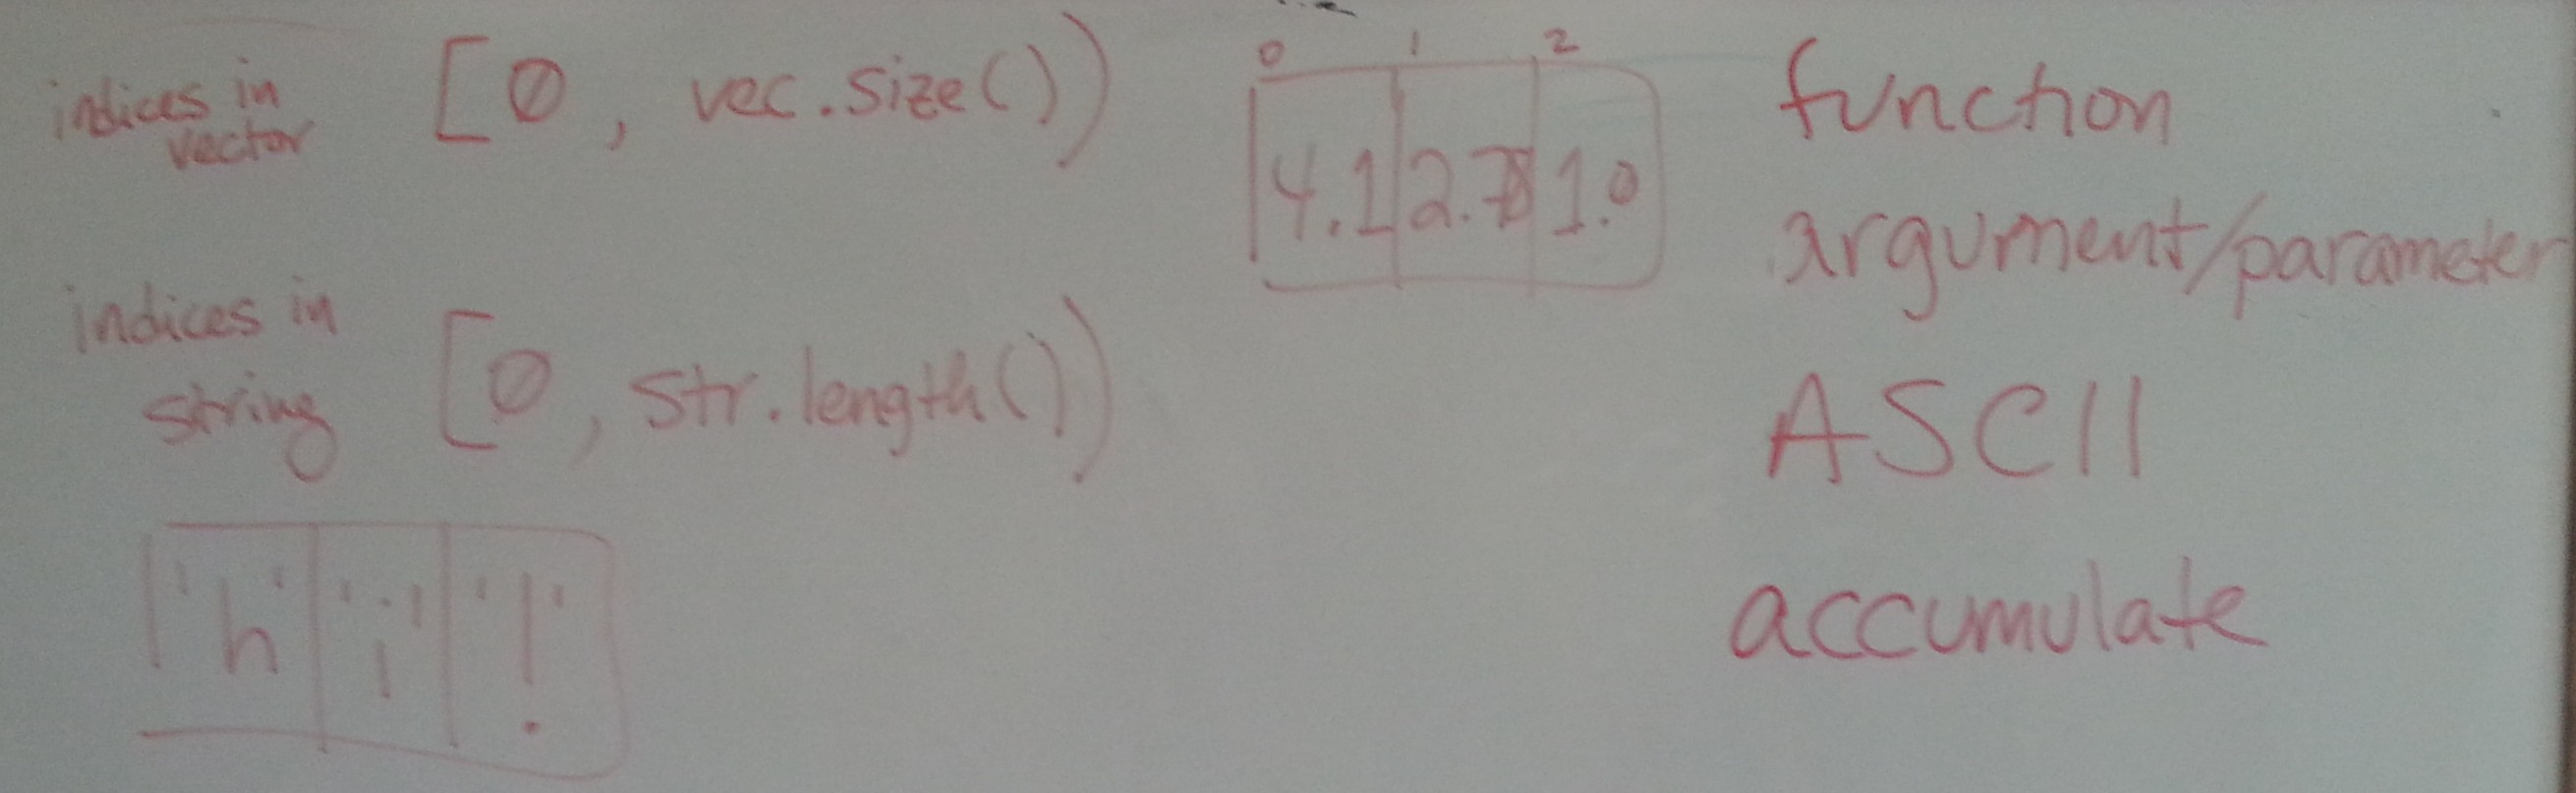 indices in
vector
[0, vec.size())
0 1 2
4.1 2.78 1.0
indices in
string
[0, str.length())
'h' 'i' '!'
function
argument/parameter
ASCII
accumulate